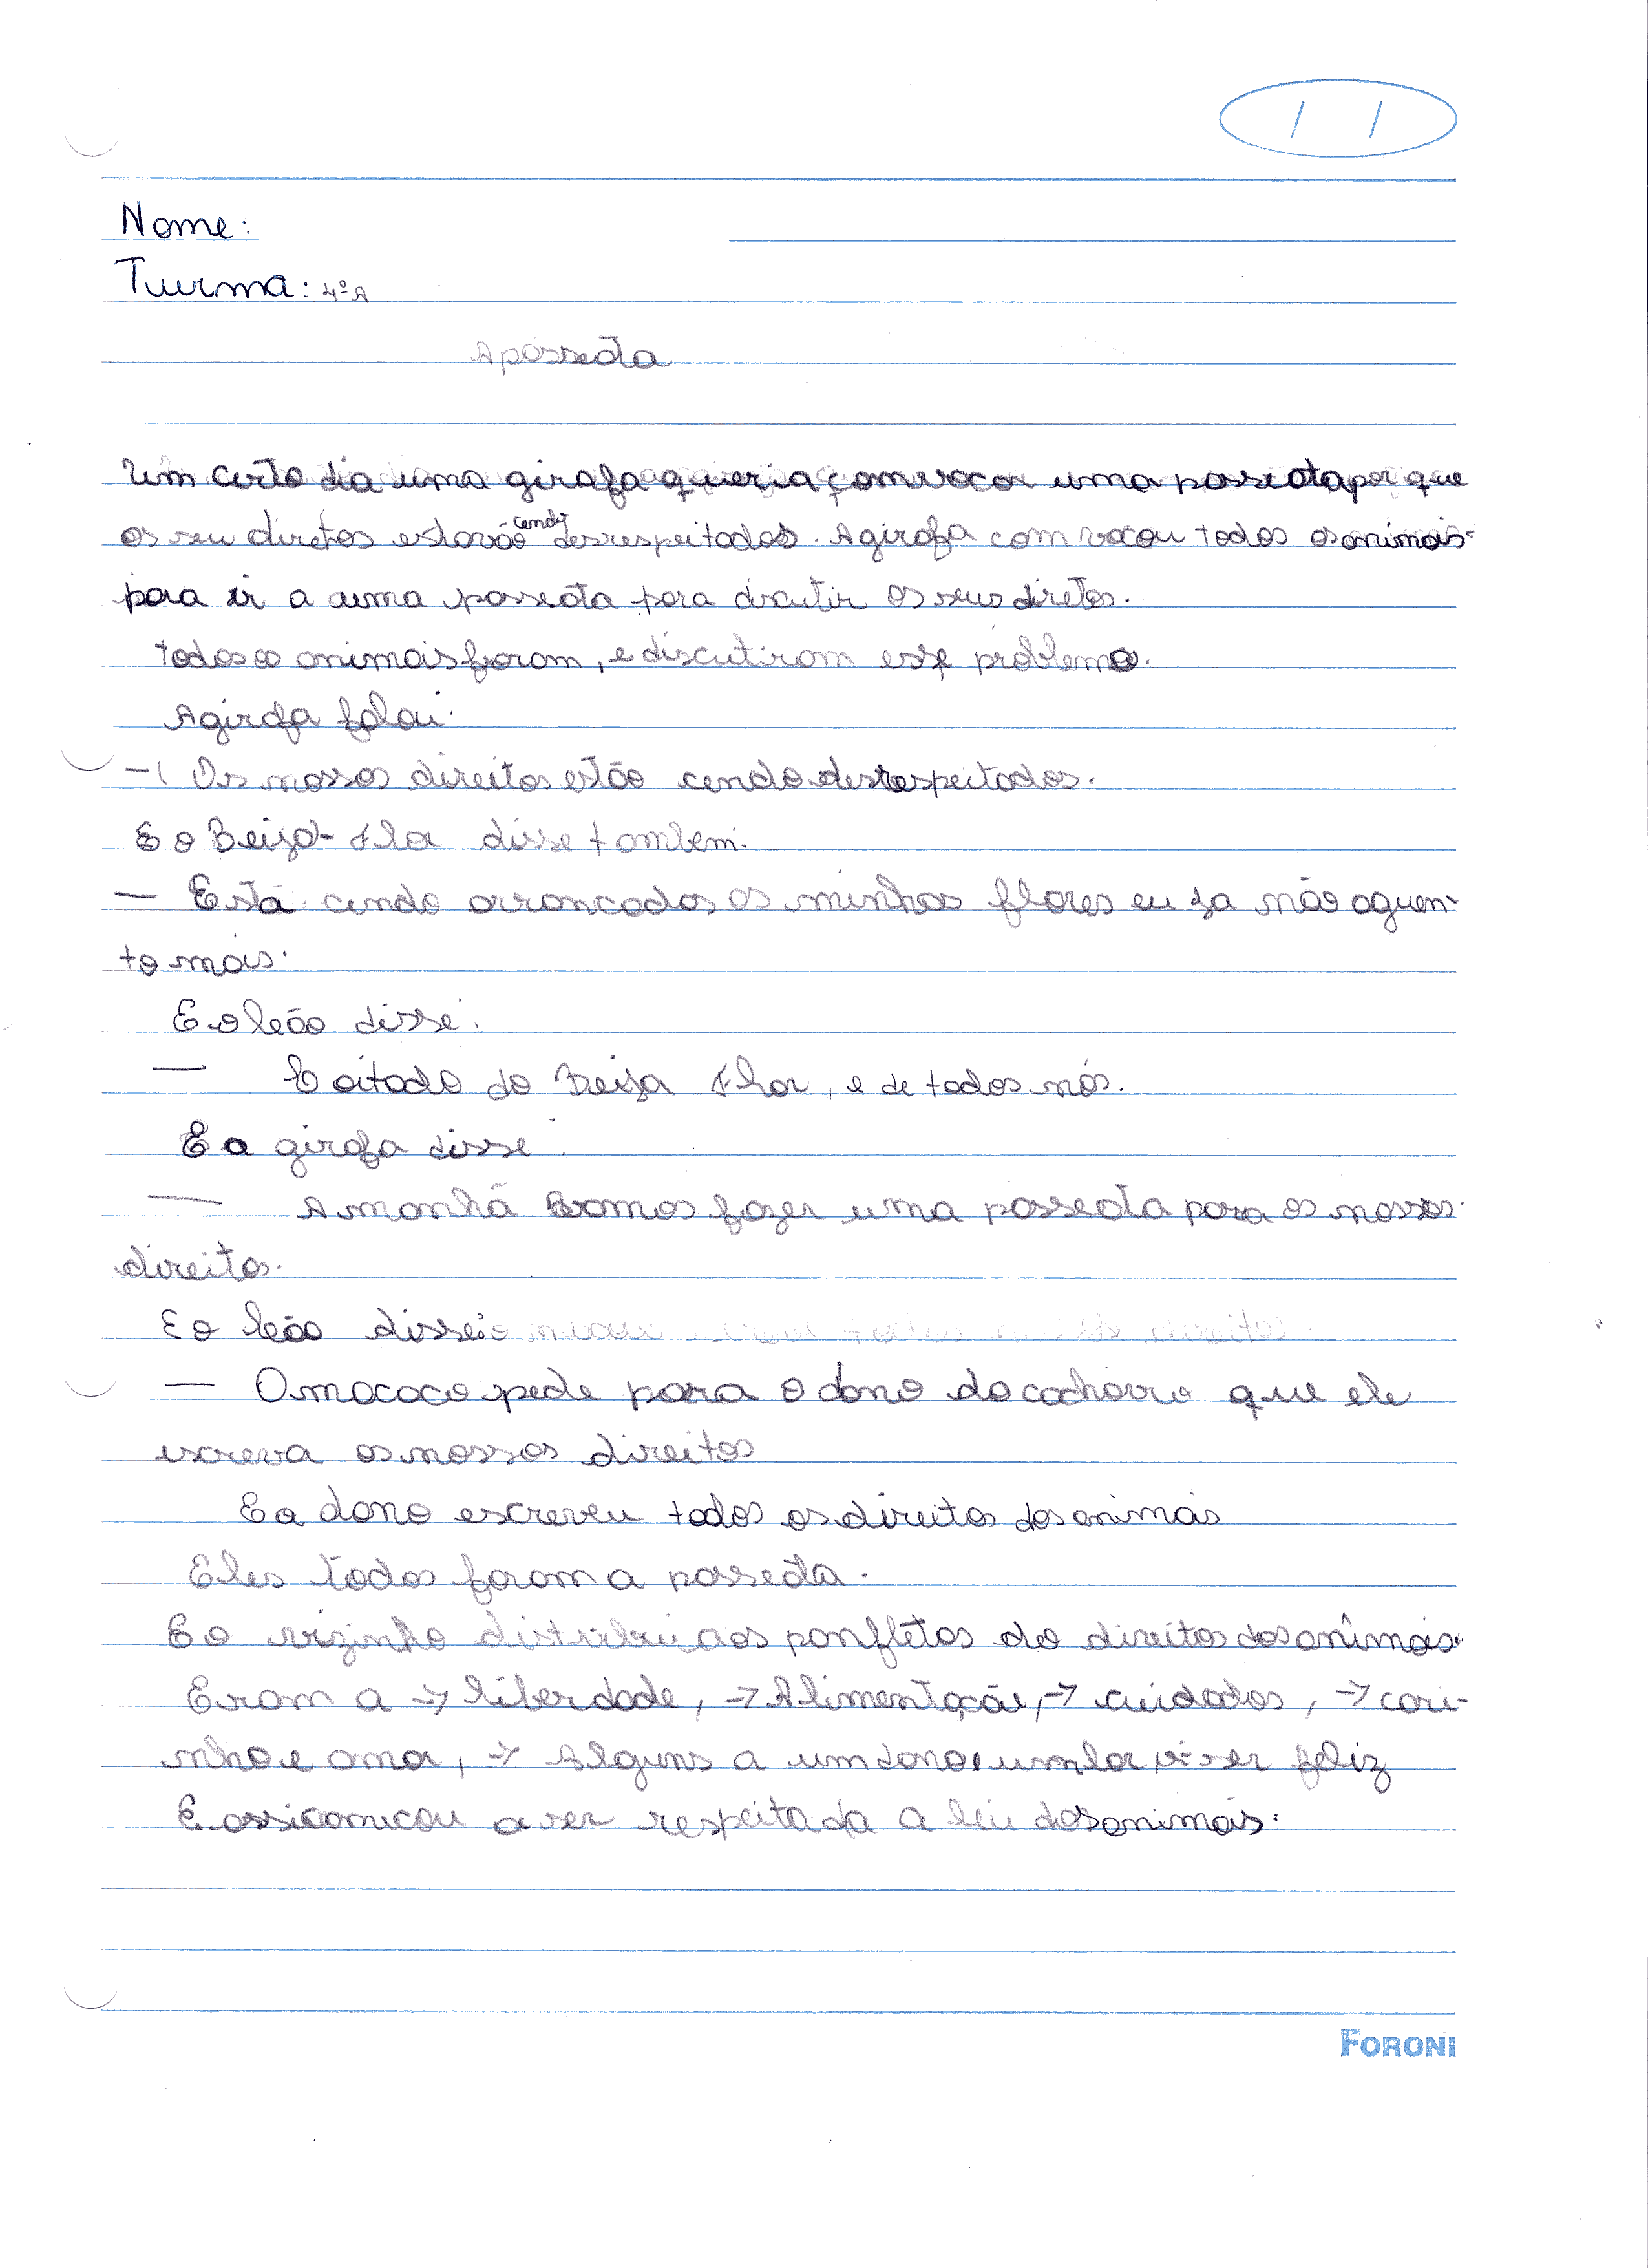 Nome:
Turma: 4º A
A passeata
Um certo dia uma girafa queria comvocar uma passeata por que
os seu diretos estavão cendo desrespeitados. A girafa comvocou todos os animais
para ir a uma passeata para discutir os seus diretos.
todos os animais foram, e discutiram esse problema.
A girafa falou:
— Os nossos direitos estão cendo desrespeitados.
E o Beija-Flor disse tambem:
— Está cendo arrancados as minhas flores eu ja não aguen-
to mais.
E o leão disse:
— Coitado do Beija Flor, e de todos nós.
E a girafa disse:
— Amanhã vamos fazer uma passeata para os nossos
direitos.
E o leão disse:
— O macaco pede para o dono do cachorro que ele
escreva os nossos direitos
E o dono escreveu todos os direitos dos animais
Eles todos foram a passeata.
E o vizinho distribuiu os panfletos do direitos dos animais.
Eram a → liberdade, → Alimentação, → cuidados, → cari-
nho e amor, → Alguns a um dono e um lar viver feliz
E assi comecou a ser respeitada a lei dos animais.
FORONI